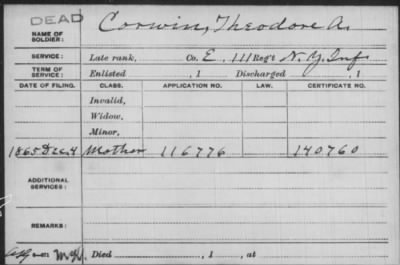 DEAD
NAME OF SOLDIER: Corwin, Theodore A.
SERVICE: Late rank, Co. E, 111 Reg't N.Y. Inf.
TERM OF SERVICE: Enlisted , 1 Discharged , 1
DATE OF FILING. CLASS. APPLICATION NO. LAW. CERTIFICATE NO.
Invalid,
Widow,
Minor,
1865 Dec. 4 Mother 116776 140760
ADDITIONAL SERVICES:
REMARKS:
Died , 1 , at